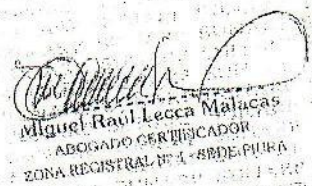 Miguel Raul Lecca Malacas
ABOGADO CERTIFICADOR
ZONA REGISTRAL N° 1 - SEDE PIURA